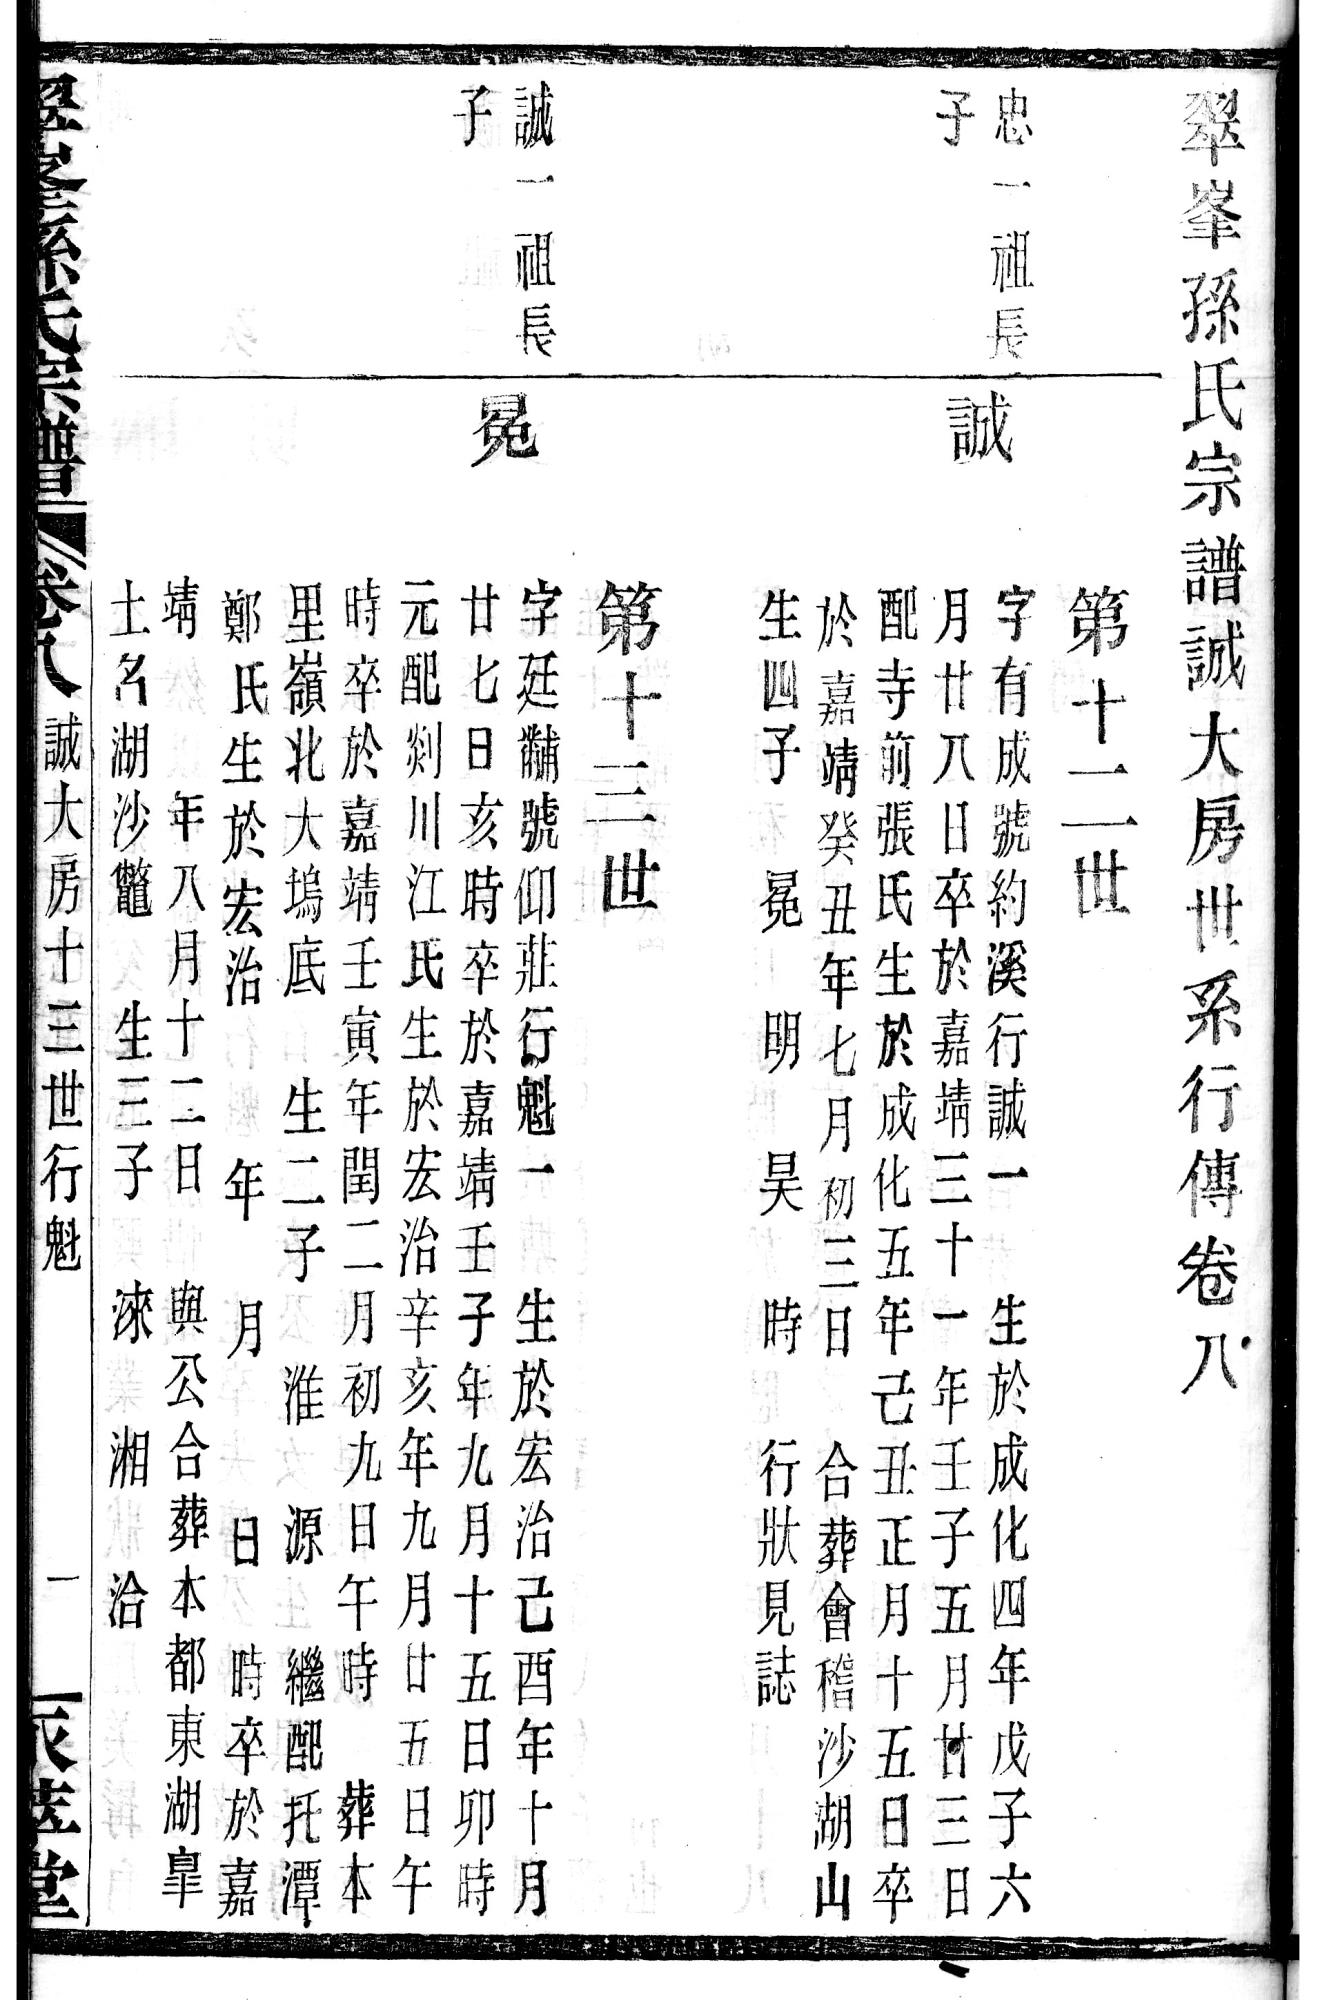 翠峯孫氏宗譜誠大房世系行傳卷八
第十二世
忠一祖長
子
誠
字有成號約溪行誠一　生於成化四年戊子六
月廿八日卒於嘉靖三十一年壬子五月廿三日
配寺前張氏生於成化五年己丑正月十五日卒
於嘉靖癸丑年七月初三日　合葬會稽沙湖山
生四子　冕　明　昊　時　行狀見誌
第十三世
誠一祖長
子
冕
字廷黼號仰莊行魁一　生於宏治己酉年十月
廿七日亥時卒於嘉靖壬子年九月十五日卯時
元配剡川江氏生於宏治辛亥年九月廿五日午
時卒於嘉靖壬寅年閏二月初九日午時　葬本
里嶺北大塢底　生二子　淮　源　繼配托潭
鄭氏生於宏治　年　月　日　時卒於嘉
靖　年八月十二日　與公合葬本都東湖皐
土名湖沙鼈　生三子　淶　湘　洽
翠峯孫氏宗譜　卷八　誠大房十三世行魁　一　萃堂